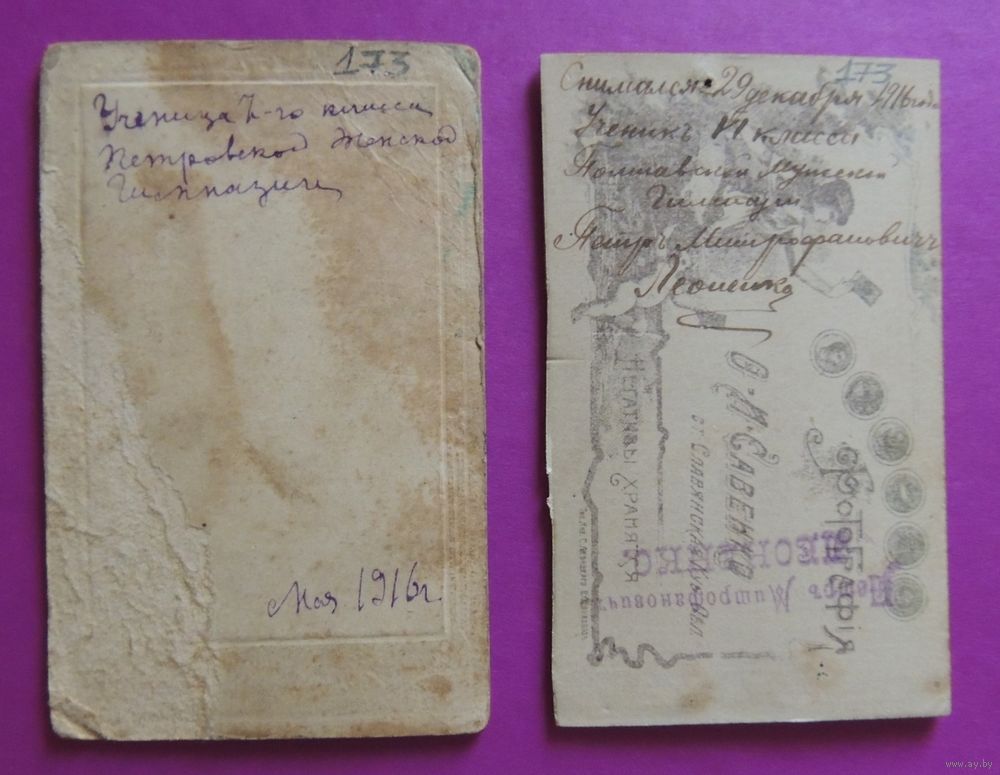 173
Ученица 7-го класса
Петровской Женской
Гимназии
Мая 1916 г.
173
Снимался 29 декабря 1916 года
Ученикъ VI класса
Полтавской Мужской
Гимназии
Петръ Митрофановичъ
Леоненко
Фотографія
О. И. Савенко
ст. Славянск
Негативы хранятся
Петръ Митрофановичъ
ЛЕОНЕНКО
www.ay.by